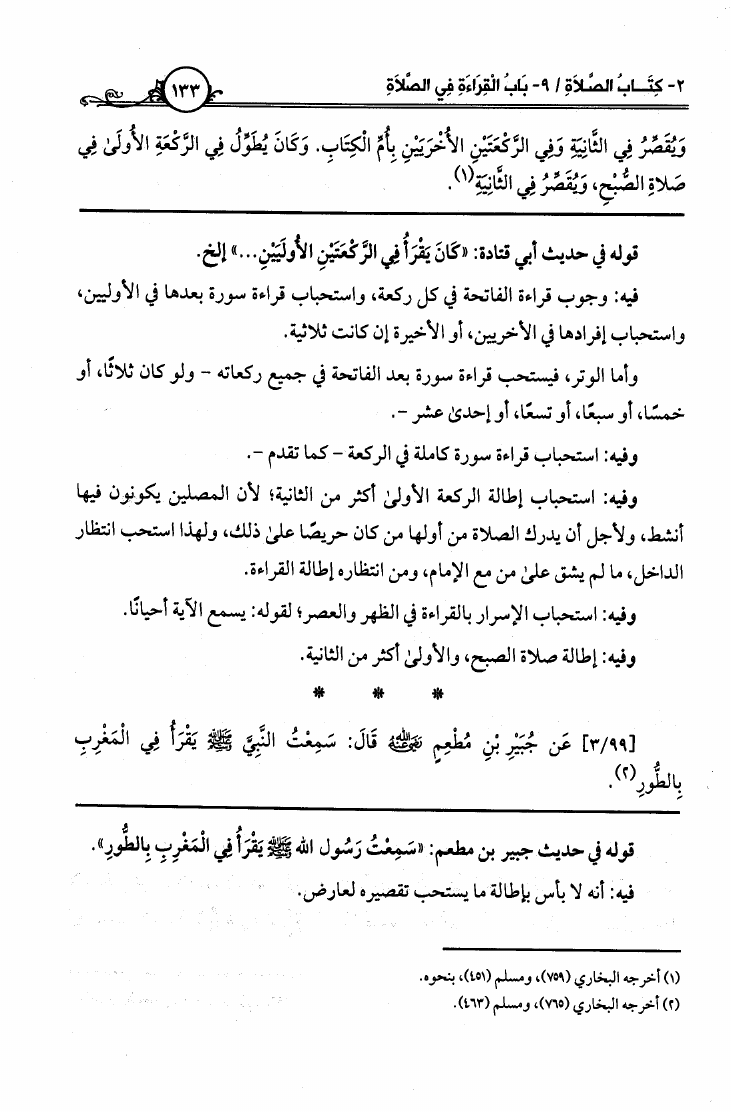 ٢- كِتَـــابُ الصَّلَاةِ / ٩- بَابُ الْقِرَاءَةِ فِي الصَّلَاةِ
١٣٣
وَيُقَصِّرُ فِي الثَّانِيَةِ وَفِي الرَّكْعَتَيْنِ الْأُخْرَيَيْنِ بِأُمِّ الْكِتَابِ. وَكَانَ يُطَوِّلُ فِي الرَّكْعَةِ الْأُولَىٰ فِي
صَلَاةِ الصُّبْحِ، وَيُقَصِّرُ فِي الثَّانِيَةِ(١).
قوله في حديث أبي قتادة: «كَانَ يَقْرَأُ فِي الرَّكْعَتَيْنِ الْأُولَيَيْنِ...» إلخ.
فيه: وجوب قراءة الفاتحة في كل ركعة، واستحباب قراءة سورة بعدها في الأوليين،
واستحباب إفرادها في الأخريين، أو الأخيرة إن كانت ثلاثية.
وأما الوتر، فيستحب قراءة سورة بعد الفاتحة في جميع ركعاته - ولو كان ثلاثًا، أو
خمسًا، أو سبعًا، أو تسعًا، أو إحدىٰ عشر -.
وفيه: استحباب قراءة سورة كاملة في الركعة - كما تقدم -.
وفيه: استحباب إطالة الركعة الأولىٰ أكثر من الثانية؛ لأن المصلين يكونون فيها
أنشط، ولأجل أن يدرك الصلاة من أولها من كان حريصًا علىٰ ذلك، ولهذا استحب انتظار
الداخل، ما لم يشق علىٰ من مع الإمام، ومن انتظاره إطالة القراءة.
وفيه: استحباب الإسرار بالقراءة في الظهر والعصر؛ لقوله: يسمع الآية أحيانًا.
وفيه: إطالة صلاة الصبح، والأولىٰ أكثر من الثانية.
* * *
[٣/٩٩] عَن جُبَيْرِ بْنِ مُطْعِمٍ رضي الله عنه قَالَ: سَمِعْتُ النَّبِيَّ ﷺ يَقْرَأُ فِي الْمَغْرِبِ
بِالطُّورِ(٢).
قوله في حديث جبير بن مطعم: «سَمِعْتُ رَسُول الله ﷺ يَقْرَأُ فِي الْمَغْرِبِ بِالطُّورِ».
فيه: أنه لا بأس بإطالة ما يستحب تقصيره لعارض.
(١) أخرجه البخاري (٧٥٩)، ومسلم (٤٥١)، بنحوه.
(٢) أخرجه البخاري (٧٦٥)، ومسلم (٤٦٣).